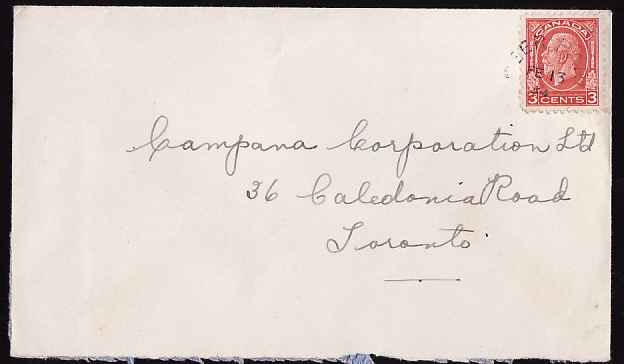 CANADA
FE 13
3 CENTS 3
Campana Corporation Ltd
36 Caledonia Road
Toronto